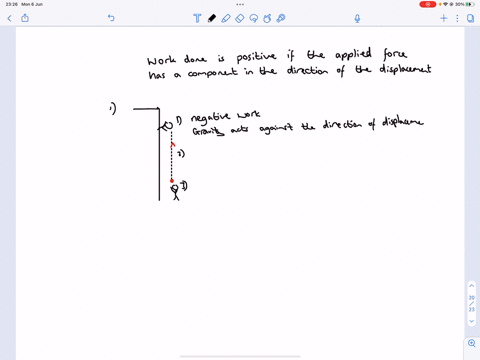 23:26 Mon 6 Jun
30%
Work done is positive if the applied force
has a component in the direction of the displacement
1) negative work
Gravity acts against the direction of displaceme
2)
3)
20
/
23